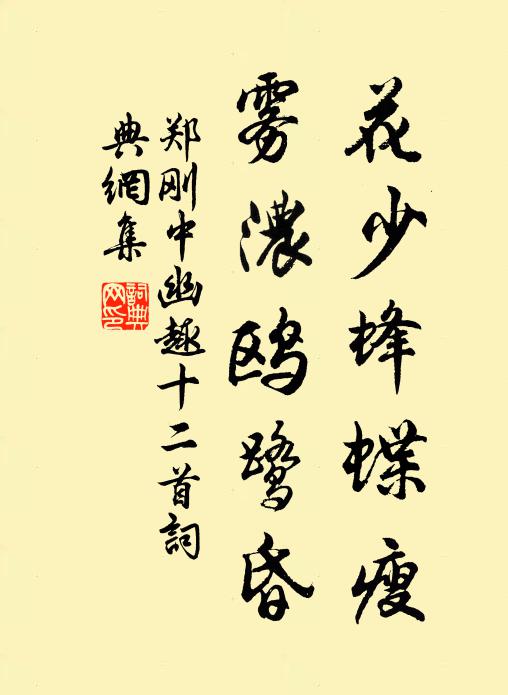 花少蜂蝶瘦
雾濃鸥鹭昏
郑刚中幽趣十二首詞
典網集
詞典
网印